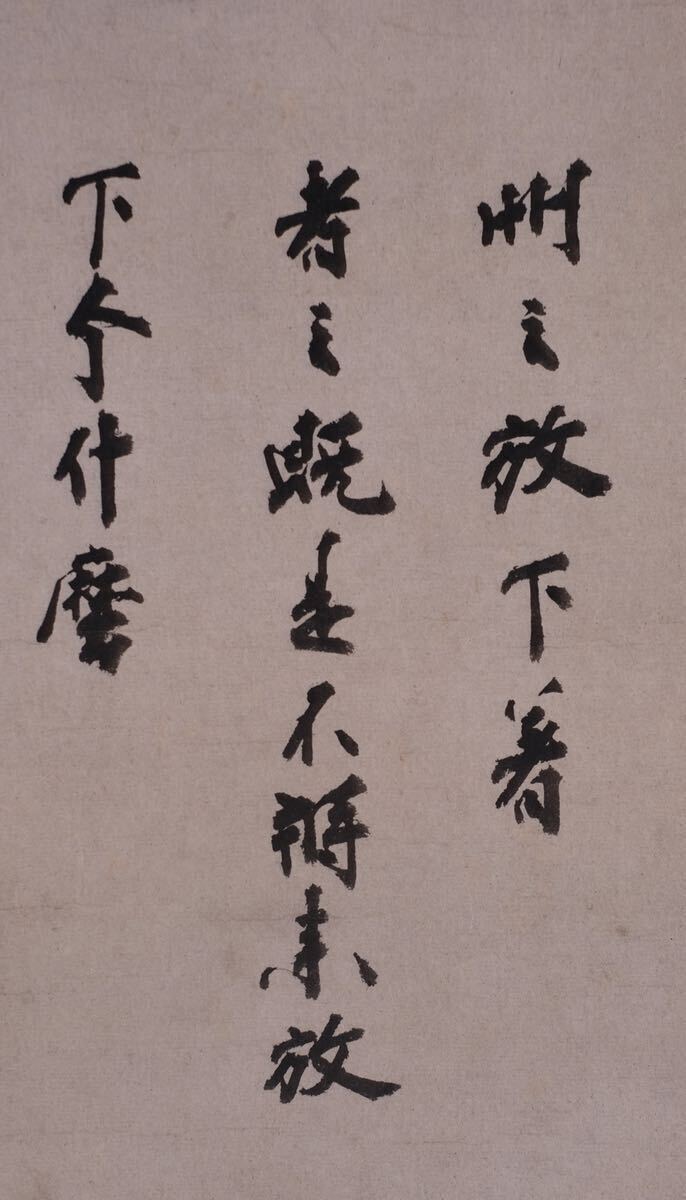 州云放下著
者云既是不將来放
下个什麼